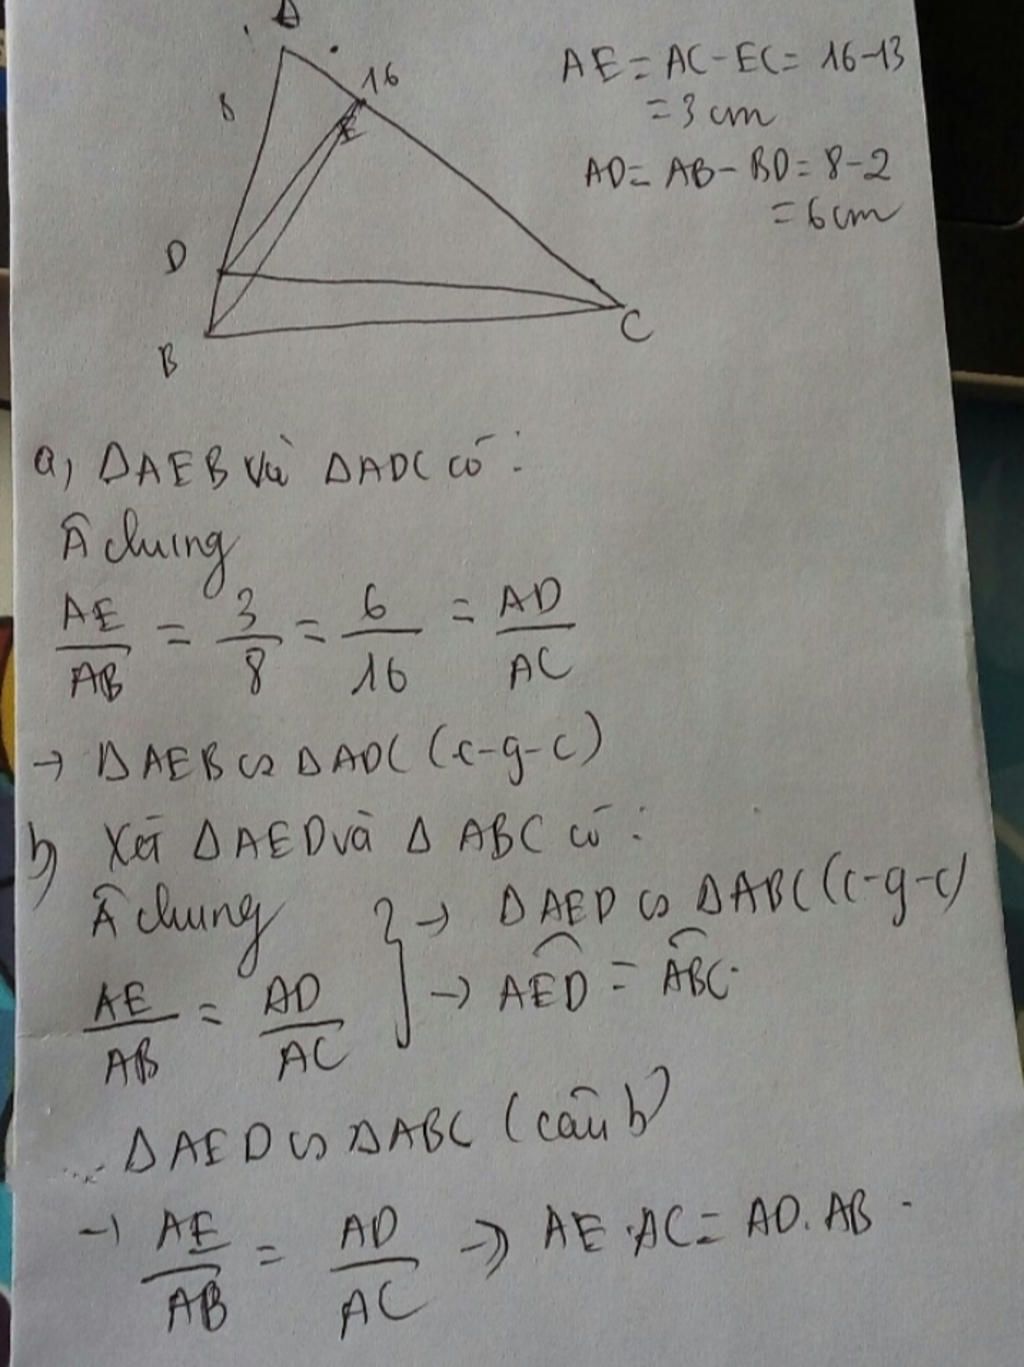 A
16
8
E
D
B
C
AE = AC - EC = 16 - 13
= 3 cm
AD = AB - BD = 8 - 2
= 6 cm
a, ΔAEB và ΔADC có:
Â chung
AE/AB = 3/8 = 6/16 = AD/AC
→ ΔAEB ∽ ΔADC (c-g-c)
b) Xét ΔAED và ΔABC có:
Â chung } → ΔAED ∽ ΔABC (c-g-c)
AE/AB = AD/AC } → AED = ABC.
ΔAED ∽ ΔABC (câu b)
→ AE/AB = AD/AC → AE.AC = AD.AB